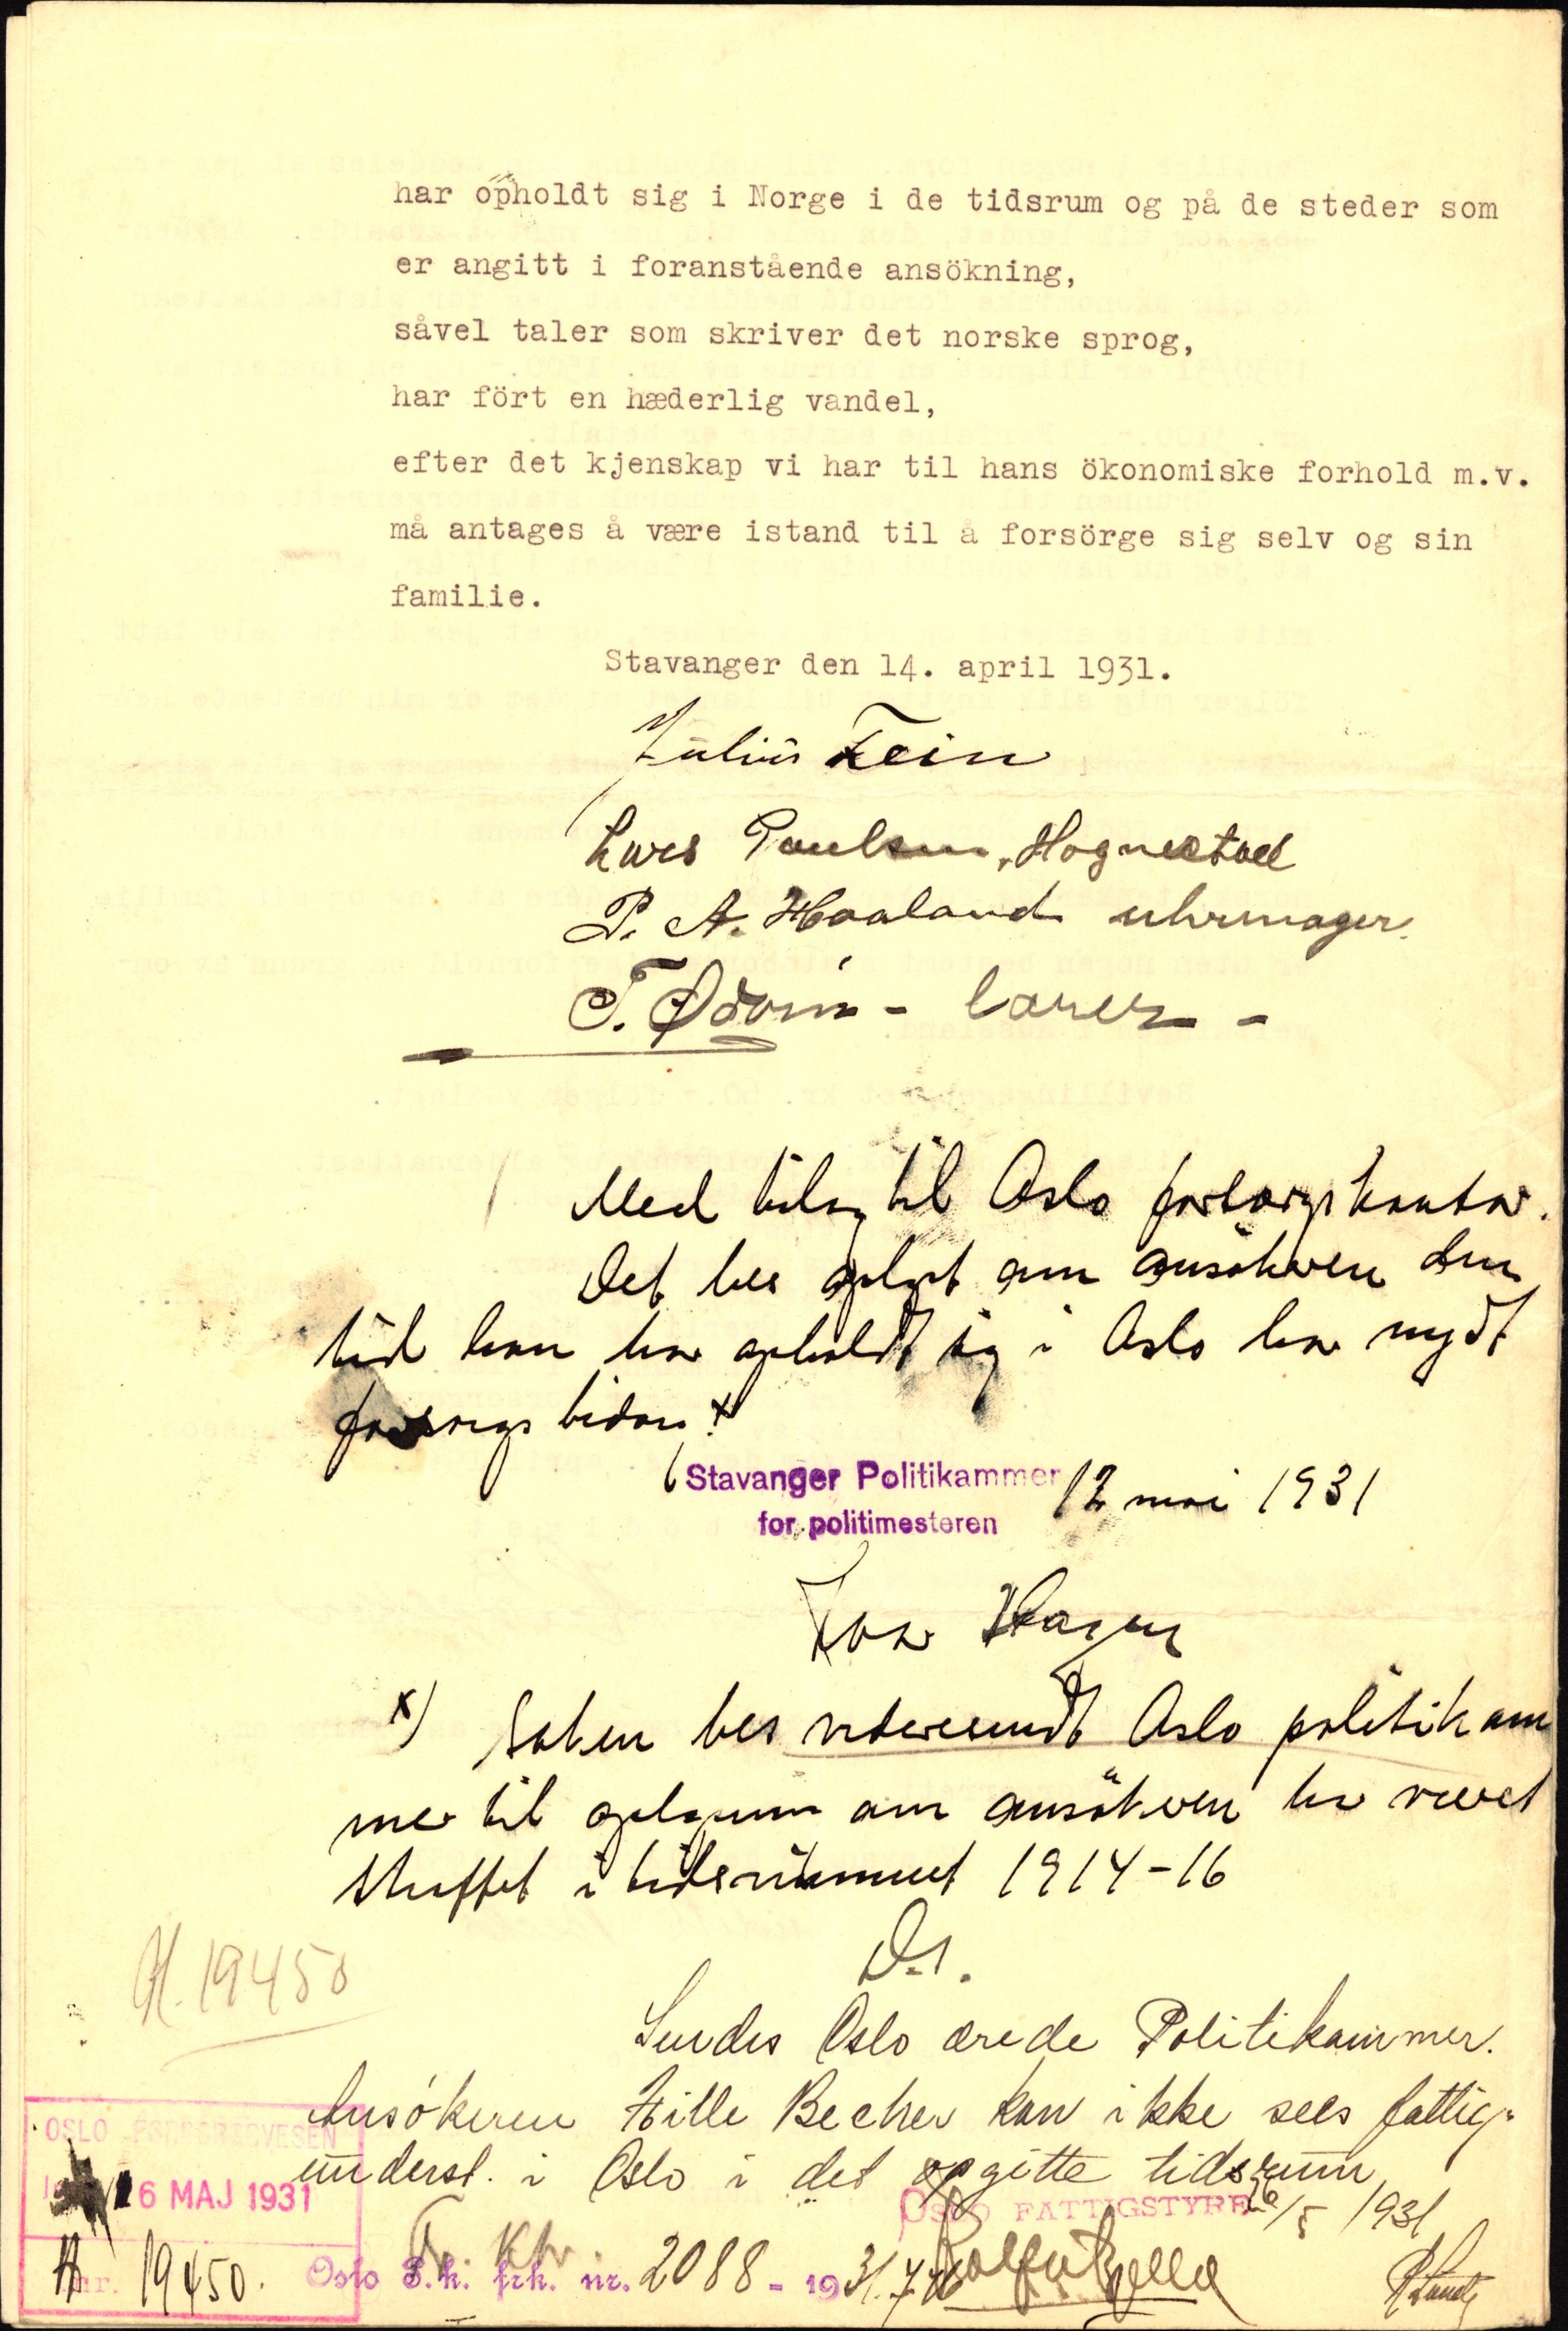 har opholdt sig i Norge i de tidsrum og på de steder som
er angitt i foranstående ansökning,
såvel taler som skriver det norske sprog,
har fört en hæderlig vandel,
efter det kjenskap vi har til hans ökonomiske forhold m.v.
må antages å være istand til å forsörge sig selv og sin
familie.
Stavanger den 14. april 1931.
Julius Fein
Lars Paulsen, Hognestad
P. A. Haaland uhrmager.
T. - lærer -
Med bilag til Oslo forsorgskontor.
Det bes oplyst om ansökeren den
tid han har opholdt sig i Oslo har nydt
forsorgsbidrag x
Stavanger Politikammer 12 mai 1931
for politimesteren
Hagen
x) Saken bes videresendt Oslo politikam
mer til oplysning om ansökeren har været
straffet i tidsrummet 1914-16
D.s.
H. 19450
Sendes Oslo ærede Politikammer.
Ansökeren Hille Becher kan ikke sees fattig-
underst. i Oslo i det opgitte tidsrum
OSLO FATTIGSTYRE 26/5 1931
OSLO FORSORGSVESEN
16 MAJ 1931
H nr. 19450.
Oslo P.k. frk. nr. 2088 - 1931.